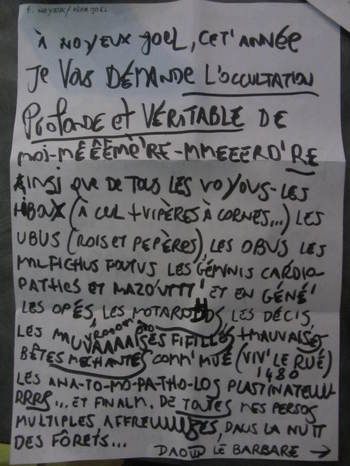 F. NOYEUX / PÈRE JOEL
À NOYEUX JOEL, CET' ANNÉE
JE VOUS DÉMANDE L'OCCULTATION
PROFONDE ET VÉRITABLE DE
MOI-MÊÊÊMÈ'RE-MMEEERD'RE
AINSI QUE DE TOUS LES VOYOUS-LES
HIBOUX (À CUL + VIPÈRES À CORNES...) LES
UBUS (ROIS ET PEPÈRES), LES OBUS LES
MALFICHUS FOUTUS LES GÉMINIS CARDIO
PATHES ET MAZOUTTT' ET EN GÉNÉ'
LES OPÉS, LES MOTARDS LES DÉCIS,
LES MAUVAAAAISES FIFILLES + MAUVAISES
BÊTES MÉCHANTES COMM' MUÉ (VIV' LE RUÉ)
1480
LES ANA-TO-MO-PA-THO-LOS PLASTINATEUU
RRRS... ET FINALM. DE TOUTES MES PERSOS
MULTIPLES, AFFREUUUSES, DANS LA NUIT
DES FÔRETS...
LE BARBARE →